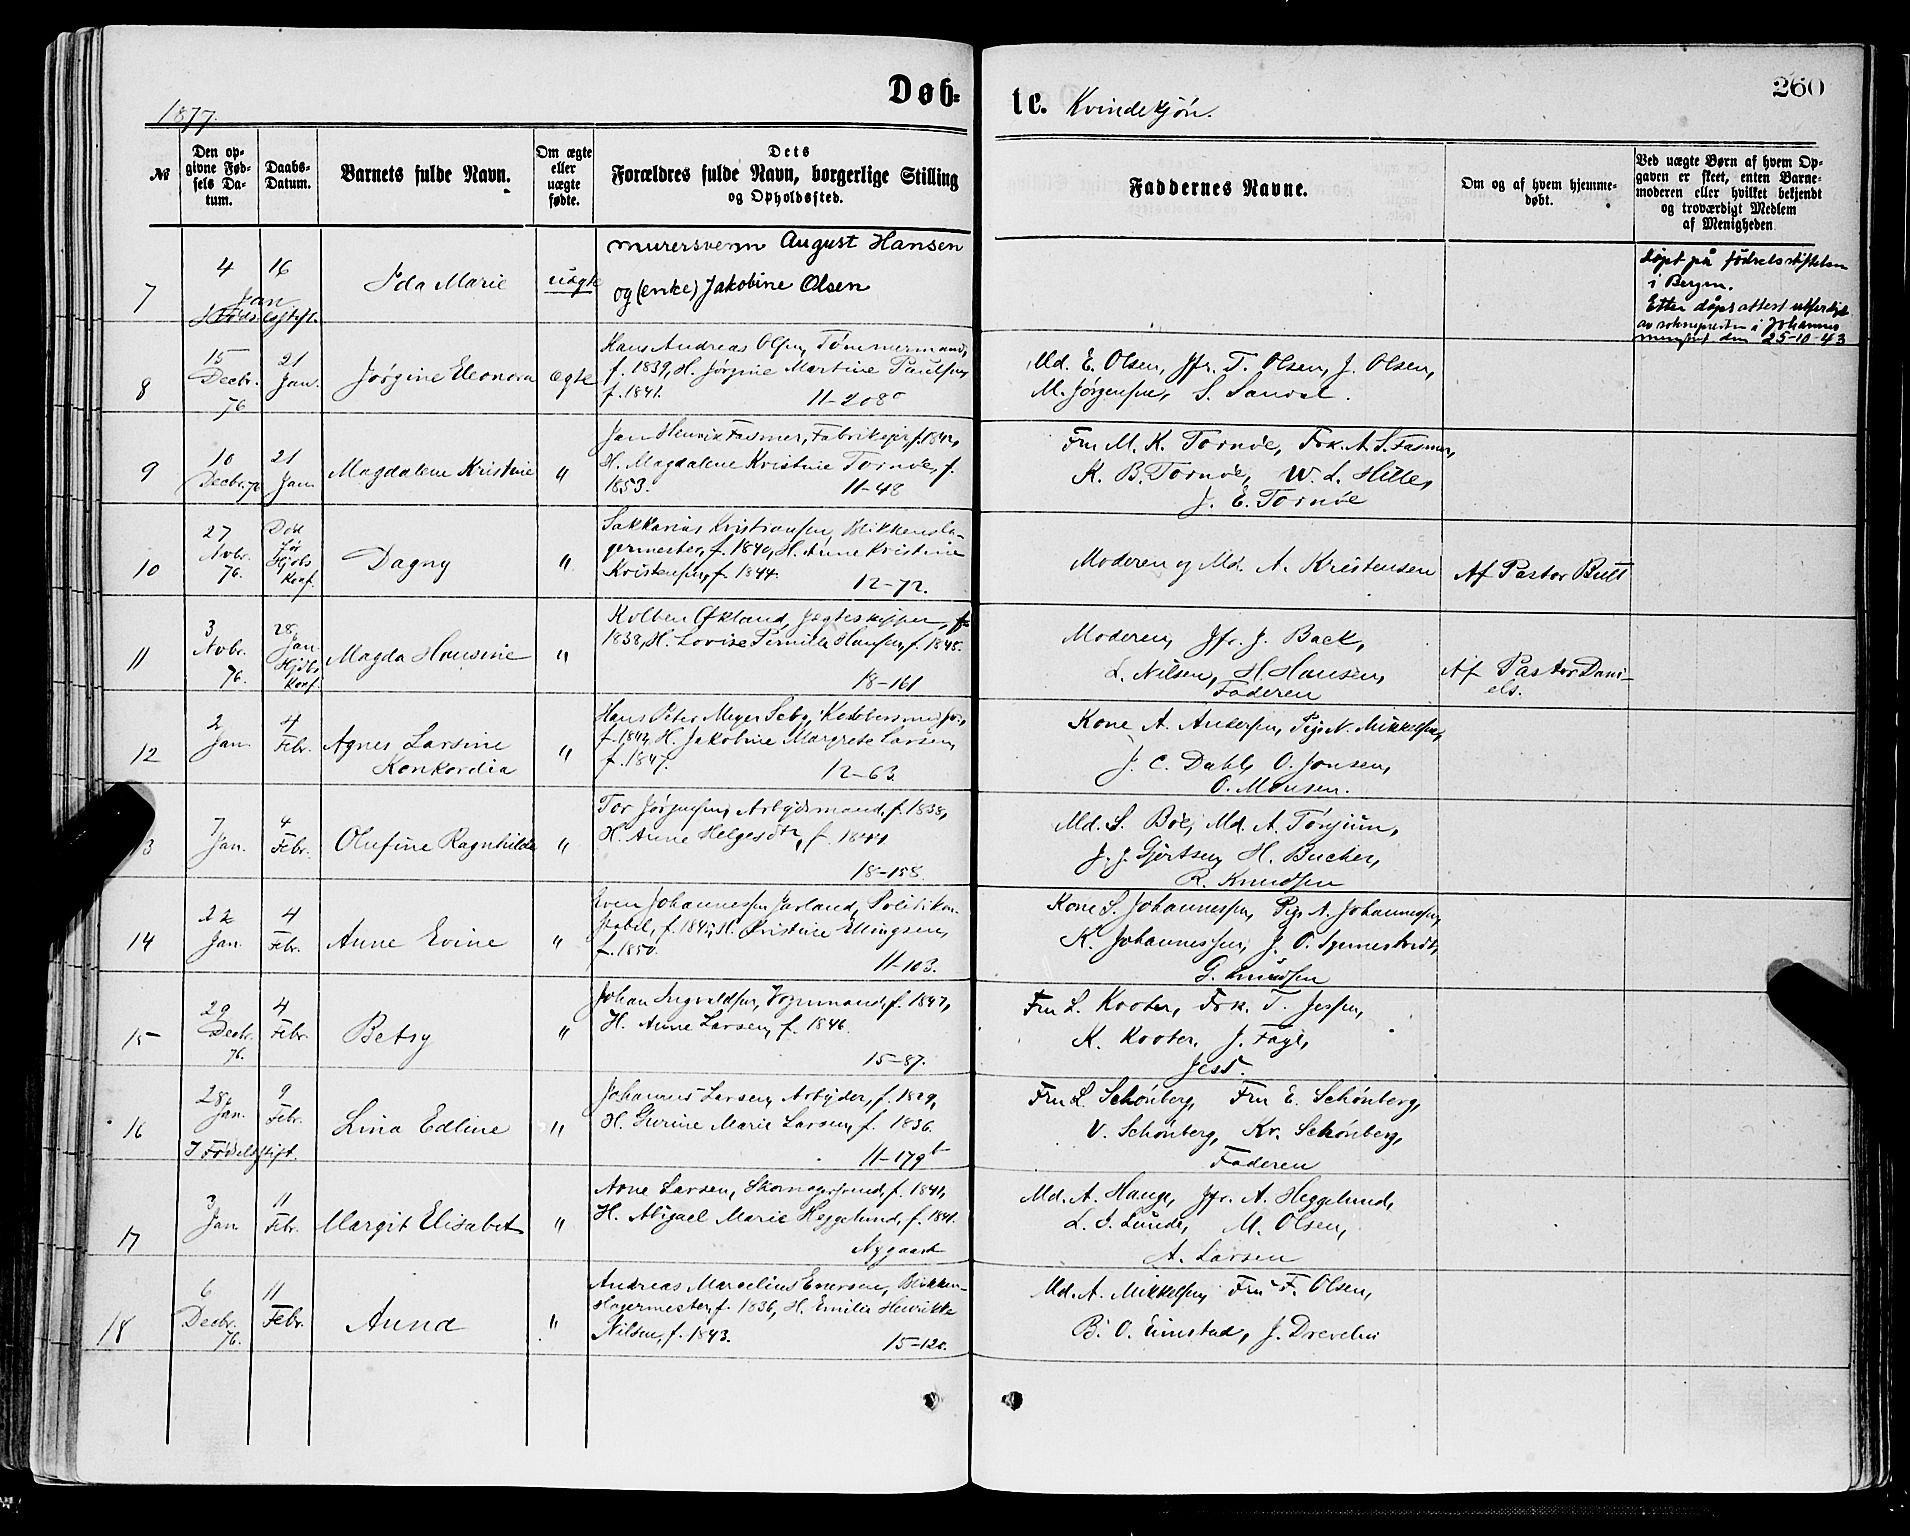 1877.
Døb-
te. Kvindekjøn.
260
№
Den op-
givne Fød-
sels Da-
tum.
Daabs-
Datum.
Barnets fulde Navn.
Om ægte
eller
uægte
fødte.
Dets
Forældres fulde Navn, borgerlige Stilling
og Opholdssted.
Faddernes Navne.
Om og af hvem hjemme-
døbt.
Ved uægte Børn af hvem Op-
gaven er skeet, enten Barne-
moderen eller hvilket bekjendt
og troværdigt Medlem
af Menigheden
7
4
16
Jan
I Føds.elsstift.
Ida Marie
uægte
murersvenn August Hansen
og (enke) Jakobine Olsen
Døpt på fødselsstiftelsen
i Bergen.
Etter dåpsattest utferdiget
av soknepresten i Johannes
menighet den 25-10-43
8
15
Decbr.
76
21
Jan.
Jørgine Eleonora
ægte
Hans Andreas Olsen, Tømmermand,
f. 1839, H. Jørgine Martine Paulsen,
f. 1841.
11-208
Md. E. Olsen, Jfr. T. Olsen, J. Olsen,
M. Jørgensen, S. Sandal.
9
10
Decbr. 76
21
Jan.
Magdalene Kristine
"
Jan Henrik Fasmer, Fabrikejer, f. 1842,
H. Magdalene Kristine Tornøe, f.
1853.
11-48
Fru M. K. Tornøe, Frk. A. S. Fasmer,
K. B. Tornøe, W. L. Hille,
J. E. Tornøe
10
27
Novbr.
76.
Død
før
Hjdbs
Konf.
Dagny
"
Sakkarias Kristiansen, Blikkensla-
germester, f. 1840, H. Anne Kristine
Kristensen, f. 1844.
12-72.
Moderen og Md. A. Kristensen
Af Pastor Bull
11
3
Novbr.
76.
28
Jan.
Hjdbs
Konf.
Magda Hansine
"
Kolben Økland, Jægteskipper, f.
1838, H. Lovise Pernille Hansen, f. 1845.
18-161
Moderen, Jfr. J. Back,
L. Nilsen, H. Hansen,
Faderen
Af Pastor Dani-
els.
12
2
Jan.
4
Febr.
Agnes Larsine
Konkordia
"
Hans Peter Meyer Seby, Kobbersmedsv.,
f. 1844, H. Jakobine Margrete Larsen,
f. 1847.
12-63.
Kone A. Andersen, Pige N. Mikkelsen,
J. C. Dahl, O. Jonsen,
O. Monsen.
3
7
Jan.
4
Febr.
Olufine Ragnhilde
"
Tor Jørgensen, Arbejdsmand, f. 1838,
H. Anne Helgesdtr, f. 1844
18-158.
Md. S. Boe, Md. A. Tønjum,
J. J. Gjertsen, H. Bucher,
R. Knudsen
14
22
Jan.
4
Febr.
Anne Evine
"
Even Johannessen Jarland, Politikon-
stabel, f. 1845, H. Kristine Ellingsen,
f. 1850.
11-103.
Kone S. Johannessen, Pige A. Johannessen,
K. Johannessen, J. O. Synnestvedt,
G. Knudsen
15
29
Decbr.
76.
4
Febr.
Betsy
"
Johan Ingvaldsen, Vognmand, f. 1847,
H. Anne Larsen, f. 1846.
15-87.
Fru L. Krooter, Frk. T. Jessen,
K. Krooter, J. Fage,
Jest.
16
28
Jan.
I Fødselsstift.
9
Febr.
Lina Edline
"
Johannes Larsen, Arbejder, f. 1829,
H. Gurine Marie Larsen, f. 1836.
11-179b
Fru L. Schønberg, Fru E. Schønberg,
V. Schønberg, Kr. Schønberg,
Faderen
17
3
Jan.
11
Febr.
Margit Elisabet
"
Arne Larsen, Skomagersvend, f. 1841,
H. Abigael Marie Heggelund, f. 1841.
Nygaard
Md. A. Hauge, Jfr. A. Heggelund,
L. J. Lunde, M. Olsen,
A. Larsen
18
6
Decbr.
76.
11
Febr.
Anna
"
Andreas Marselius Enersen, Blikken-
slagermester, f. 1836, H. Emilie Henrikke
Nilsen, f. 1843.
15-120.
Md. A. Mikkelsen, Fru F. Olsen,
B. O. Einstad, J. Drevelin